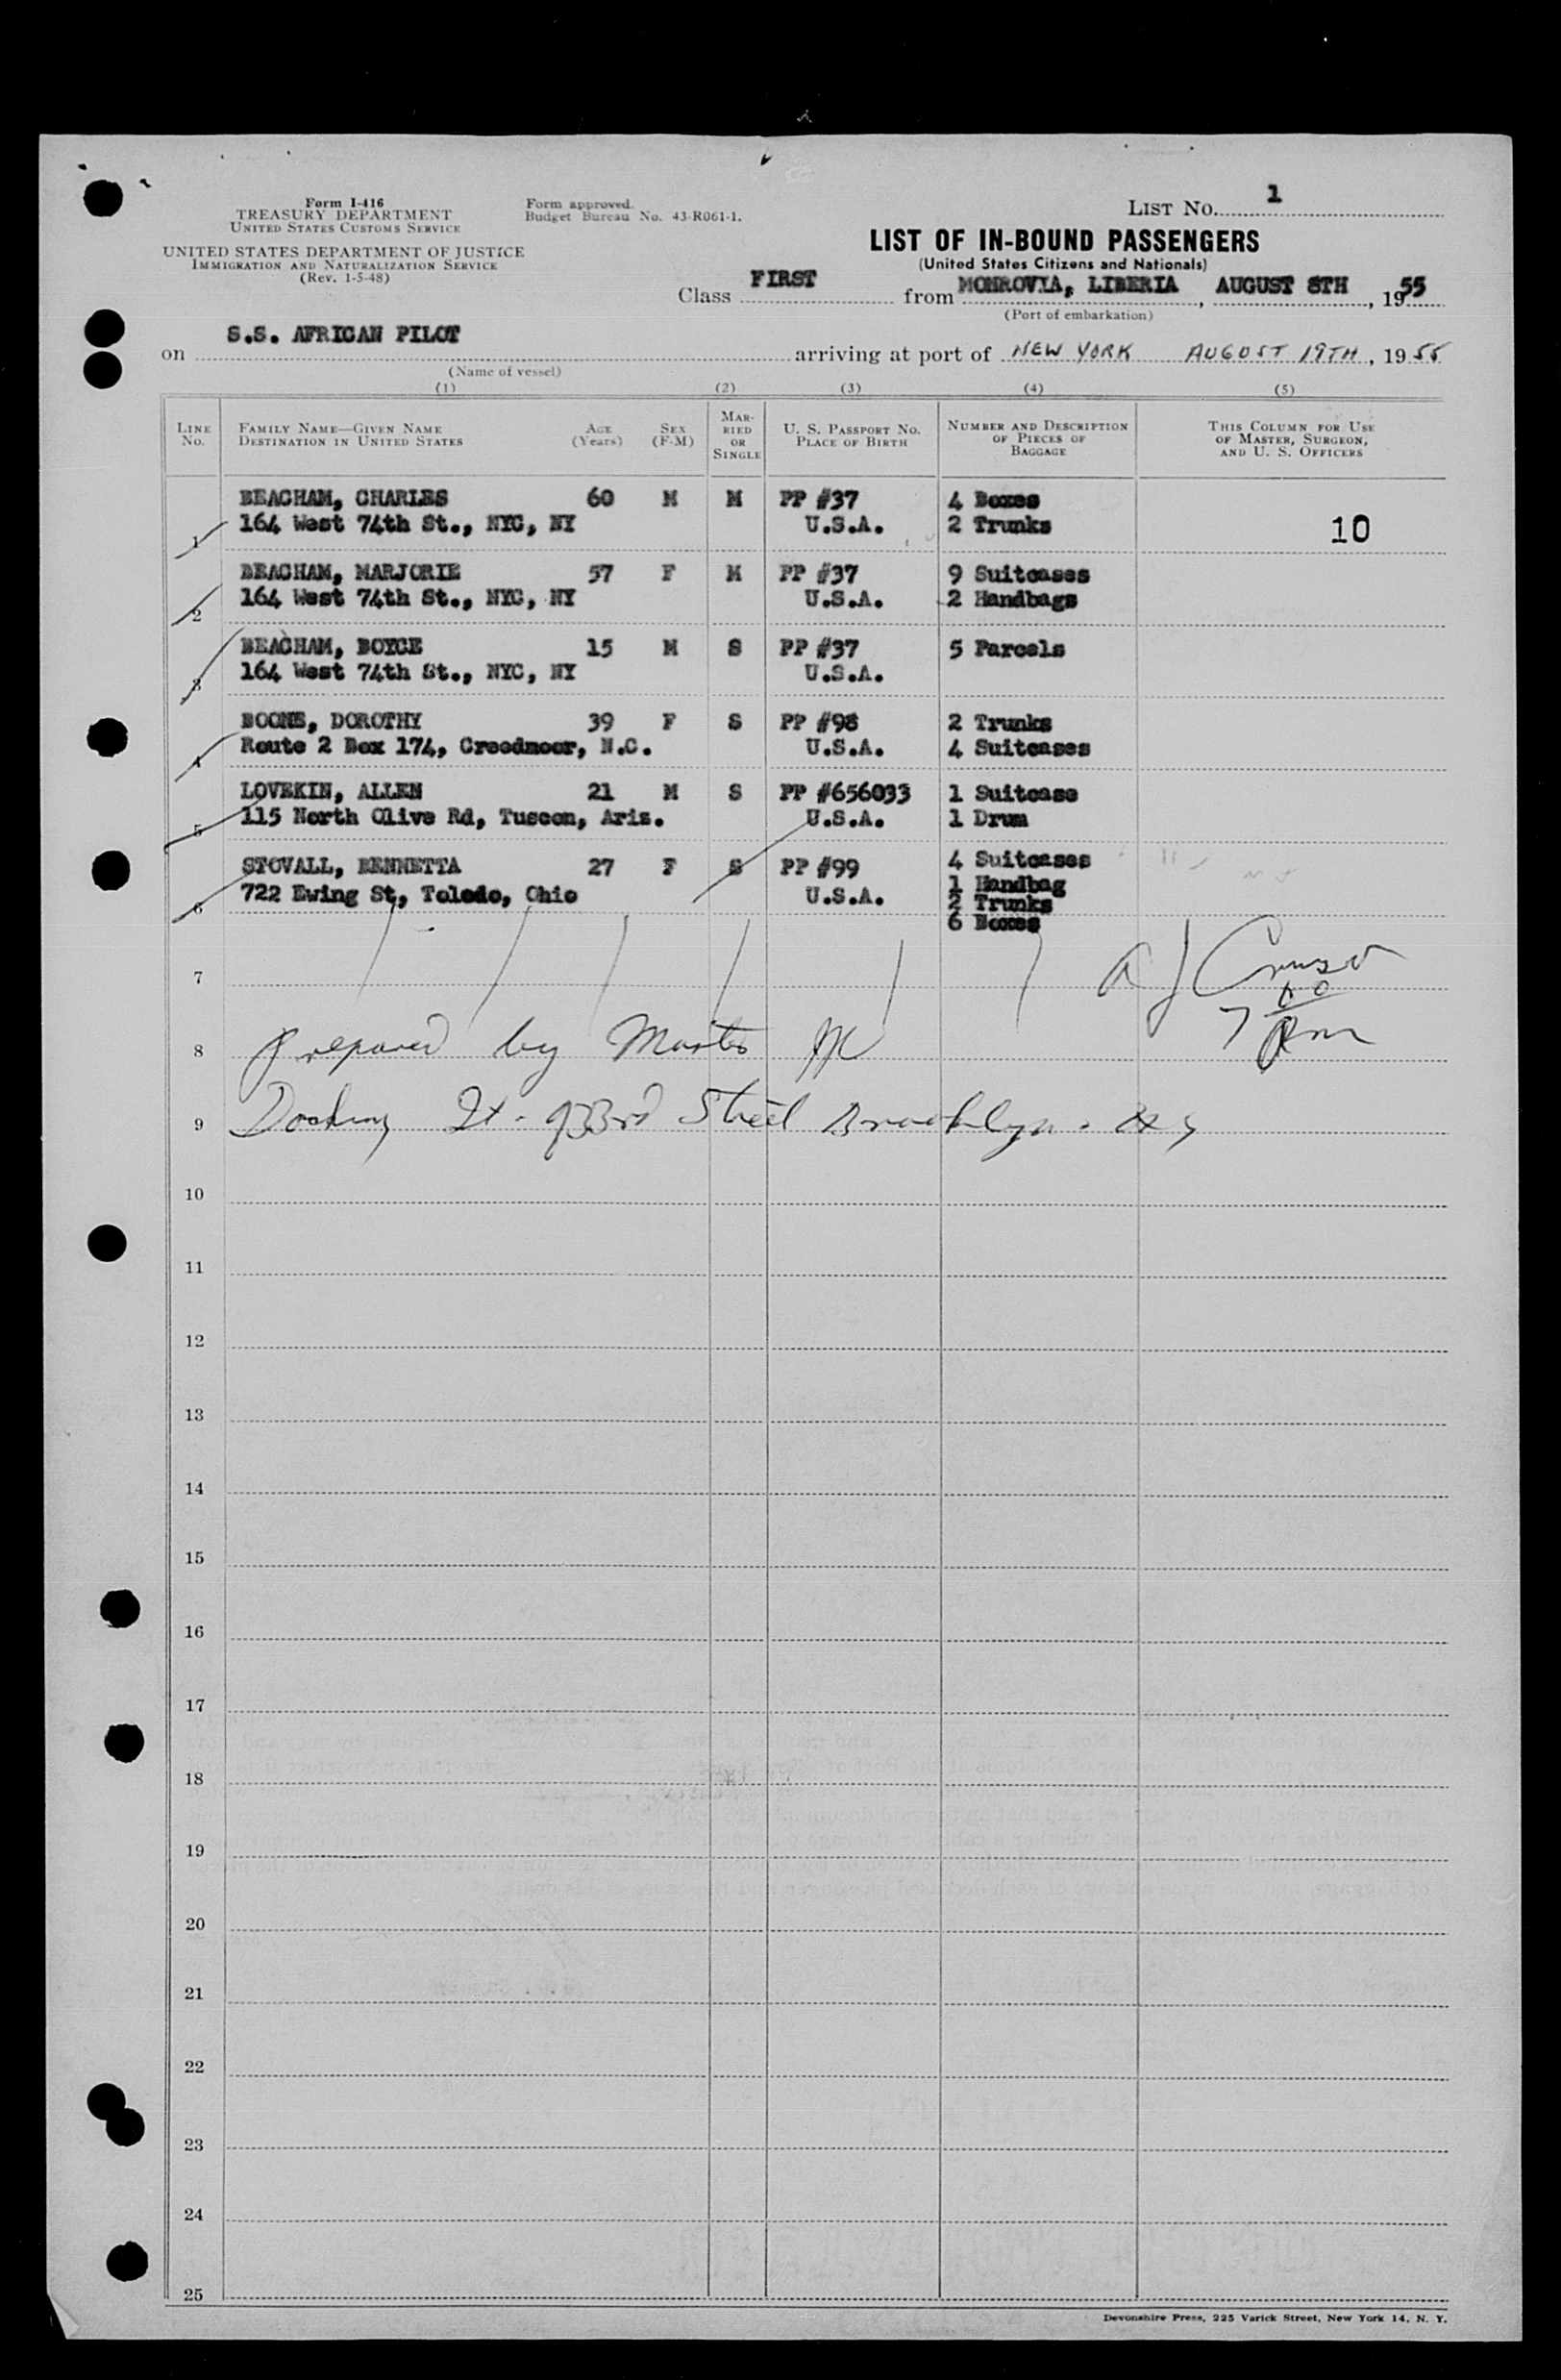 Form I-416
TREASURY DEPARTMENT
UNITED STATES CUSTOMS SERVICE
UNITED STATES DEPARTMENT OF JUSTICE
IMMIGRATION AND NATURALIZATION SERVICE
(Rev. 1-5-48)
Form approved.
Budget Bureau No. 43-R061-1.
LIST NO. 1
LIST OF IN-BOUND PASSENGERS
(United States Citizens and Nationals)
Class FIRST from MONROVIA, LIBERIA, AUGUST 8TH, 1955
(Port of embarkation)
on S.S. AFRICAN PILOT arriving at port of NEW YORK AUGUST 19TH, 1955
(Name of vessel)
(1) (2) (3) (4) (5)
LINE NO. FAMILY NAME—GIVEN NAME DESTINATION IN UNITED STATES AGE (Years) SEX (F-M) MARRIED OR SINGLE U. S. PASSPORT NO. PLACE OF BIRTH NUMBER AND DESCRIPTION OF PIECES OF BAGGAGE THIS COLUMN FOR USE OF MASTER, SURGEON, AND U. S. OFFICERS
BEACHAM, CHARLES 60 M M PP #37 4 Boxes
1 164 West 74th St., NYC, NY U.S.A. 2 Trunks 10
BEACHAM, MARJORIE 57 F M PP #37 9 Suitcases
2 164 West 74th St., NYC, NY U.S.A. 2 Handbags
BEACHAM, BOYCE 15 M S PP #37 5 Parcels
3 164 West 74th St., NYC, NY U.S.A.
BOONE, DOROTHY 39 F S PP #98 2 Trunks
4 Route 2 Box 174, Creedmoor, N.C. U.S.A. 4 Suitcases
LOVEKIN, ALLEN 21 M S PP #656033 1 Suitcase
5 115 North Olive Rd, Tuscon, Ariz. U.S.A. 1 Drum
STOVALL, BENNETTA 27 F S PP #99 4 Suitcases
6 722 Ewing St, Toledo, Ohio U.S.A. 1 Handbag
2 Trunks
6 Boxes
7
8 Prepared by Master
9 Docking 33rd Street Brooklyn. NY
10
11
12
13
14
15
16
17
18
19
20
21
22
23
24
25
Devonshire Press, 225 Varick Street, New York 14, N. Y.